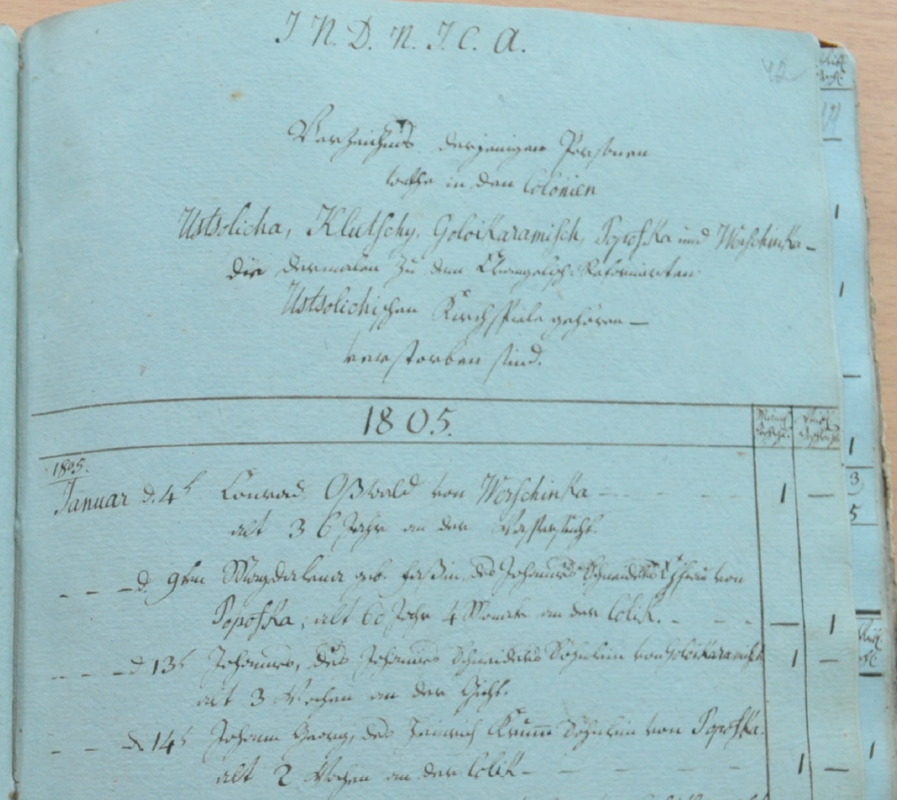 I N. D. N. I. C. A.
42
Verzeichnis derjenigen Personen
welche in den Colonien
Ustsolicha, Klutschy, Goloikaramisch, Popofka und Werschinka
die dermalen zu dem Evangelisch-Reformierten
Ustsolichischen Kirchspiele gehören
verstorben sind.
1805.
1805.
Januar d. 4t Conrad Oßwald von Werschinka 1 —
alt 36 Jahr an der Wassersucht.
— — — d. 9ten Magdalena geb. des Johannes Schneiders Ehfrau von
Popofka, alt 60 Jahr 4 Monate an der Colik. — 1
— — — d 13t Johannes, des Johannes Schneiders Söhnlein von Goloikaramisch 1 —
alt 3 Wochen an der Gicht.
— — — d. 14t Johann Georg, des Heinrich Krumm Söhnlein von Popofka.
alt 2 Wochen an der Colik — 1 —